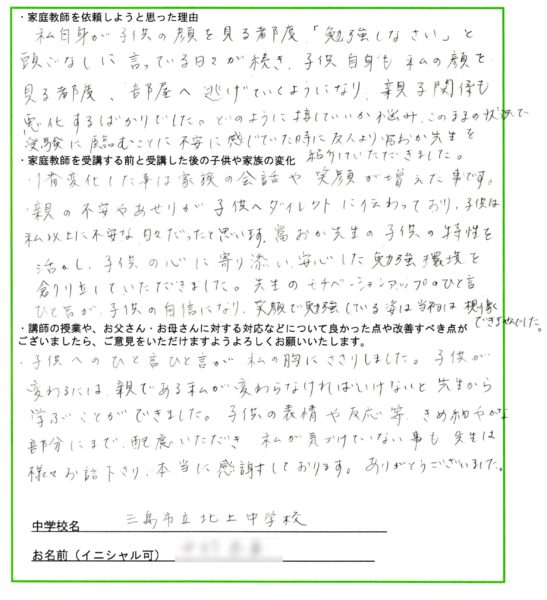 ・家庭教師を依頼しようと思った理由
私自身が子供の顔を見る都度「勉強しなさい」と
頭ごなしに言っている日々が続き、子供自身も私の顔を
見る都度、部屋へ逃げていくようになり、親子関係も
悪化するばかりでした。どのように接していいか悩み、このままの状況で
受験に臨むことに不安に感じていた時に友人より冨おか先生を
紹介いただきました。
・家庭教師を受講する前と受講した後の子供や家族の変化
1番変化した事は家族の会話や笑顔が増えた事です。
・親の不安やあせりが子供へダイレクトに伝わっており、子供は
私以上に不安な日々だったと思います。冨おか先生の子供の特性を
活かし、子供の心に寄り添い、安心した勉強環境を
創り出していただきました。先生のモチベーションアップのひと言
ひと言が、子供の自信になり、笑顔で勉強している姿は当初は想像
できませんでした。
・講師の授業や、お父さん・お母さんに対する対応などについて良かった点や改善すべき点が
ございましたら、ご意見をいただけますようよろしくお願いいたします。
・子供へのひと言ひと言が私の胸にささりしました。子供が
変わるには、親である私が変わらなければいけないと先生から
学ぶことができました。子供の表情や反応等、きめ細やかな
部分にまで、配慮いただき 私が気づけていない事も先生は
様々お話下さり、本当に感謝しております。ありがとうございました。
中学校名 三島市立北上中学校
お名前（イニシャル可）